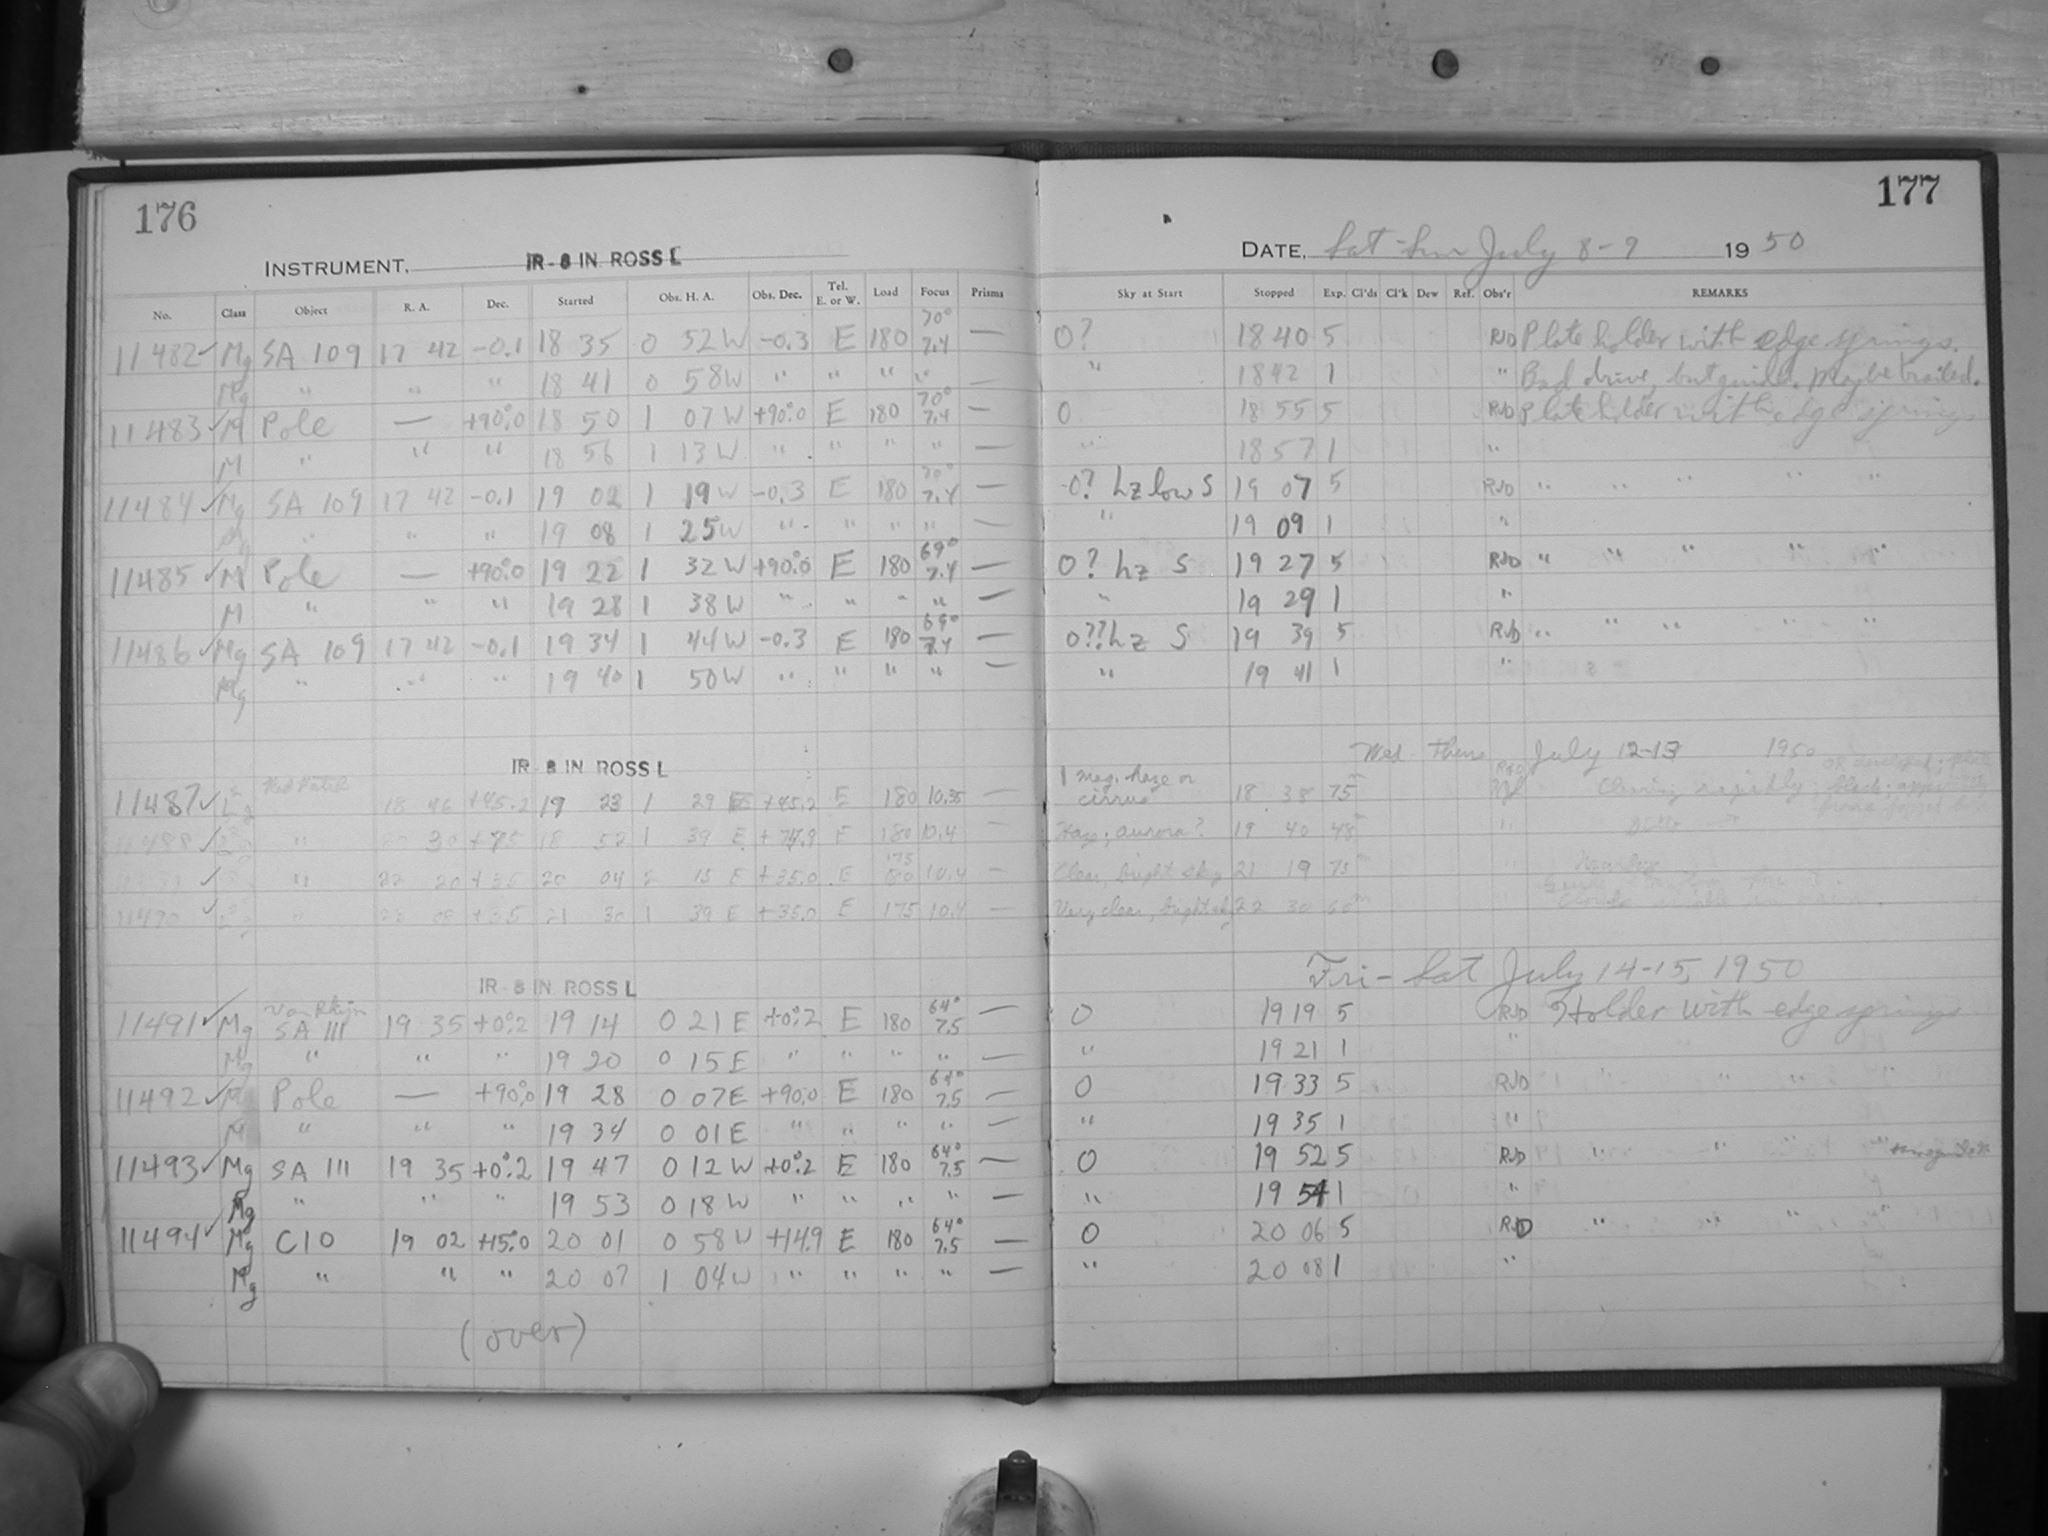 176
INSTRUMENT, IR-8 IN ROSS L
No. Class Object R. A. Dec. Started Obs. H. A. Obs. Dec. Tel. E. or W. Load Focus Prisms
11482 ✓ Mg SA 109 17 42 -0.1 18 35 0 52 W -0.3 E 180 70° 7.4 —
Mg " " " 18 41 0 58 W " " " " —
11483 ✓ M Pole — +90°.0 18 50 1 07 W +90°.0 E 180 70° 7.4 —
M " " " 18 56 1 13 W " " " " —
11484 ✓ Mg SA 109 17 42 -0.1 19 02 1 19 W -0.3 E 180 70° 7.4 —
Mg " " " 19 08 1 25 W " " " " —
11485 ✓ M Pole — +90°.0 19 22 1 32 W +90°.0 E 180 69° 7.4 —
M " " " 19 28 1 38 W " " " " —
11486 ✓ Mg SA 109 17 42 -0.1 19 34 1 44 W -0.3 E 180 69° 7.4 —
Mg " " " 19 40 1 50 W " " " " —
IR-8 IN ROSS L
11487 ✓ 18 46 +45.2 1 29 E +45.2 E 180 10.35 —
✓ " 30 +75 18 52 1 39 E E 180 10.4 —
✓ " 22 20 +35 20 04 2 15 E +35.0 E 175 10.4 —
✓ " +35 21 30 1 39 E +35.0 E 175 10.4 —
IR-8 IN ROSS L
11491 ✓ Mg Van Rhijn SA 111 19 35 +0°.2 19 14 0 21 E +0°.2 E 180 64° 7.5 —
Mg " " " 19 20 0 15 E " " " " —
11492 ✓ M Pole — +90°.0 19 28 0 07 E +90°.0 E 180 64° 7.5 —
M " " " 19 34 0 01 E " " " " —
11493 ✓ Mg SA 111 19 35 +0°.2 19 47 0 12 W +0°.2 E 180 64° 7.5 —
Mg " " " 19 53 0 18 W " " " " —
11494 ✓ Mg C10 19 02 +15°.0 20 01 0 58 W +14.9 E 180 64° 7.5 —
Mg " " " 20 07 1 04 W " " " " —
(over)
177
DATE, Sat-Sun July 8-9 1950
Sky at Start Stopped Exp. Cl'ds Cl'k Dew Ref. Obs'r REMARKS
0? 18 40 5 RJD Plate holder with edge springs.
" 18 42 1 " Bad drive, but guided. Maybe trailed.
0 18 55 5 RJD Plate holder with edge springs
" 18 57 1 "
0? hz low S 19 07 5 RJD " " " " "
" 19 09 1 "
0? hz S 19 27 5 RJD " " " " "
" 19 29 1 "
0?? hz S 19 39 5 RJD " " " " "
" 19 41 1 "
Wed-Thurs July 12-13 1950
1 mag. haze or cirrus 18 38 75m Clearing rapidly;
Haze; aurora? 19 40 48m "
Clear, bright sky 21 19 75m
Very clear, bright sky 22 30 60m
Fri-Sat July 14-15, 1950
0 19 19 5 RJD Holder with edge springs
" 19 21 1 "
0 19 33 5 RJD " " " "
" 19 35 1 "
0 19 52 5 RJD " " " "
" 19 54 1 "
0 20 06 5 RJD " " " "
" 20 08 1 "